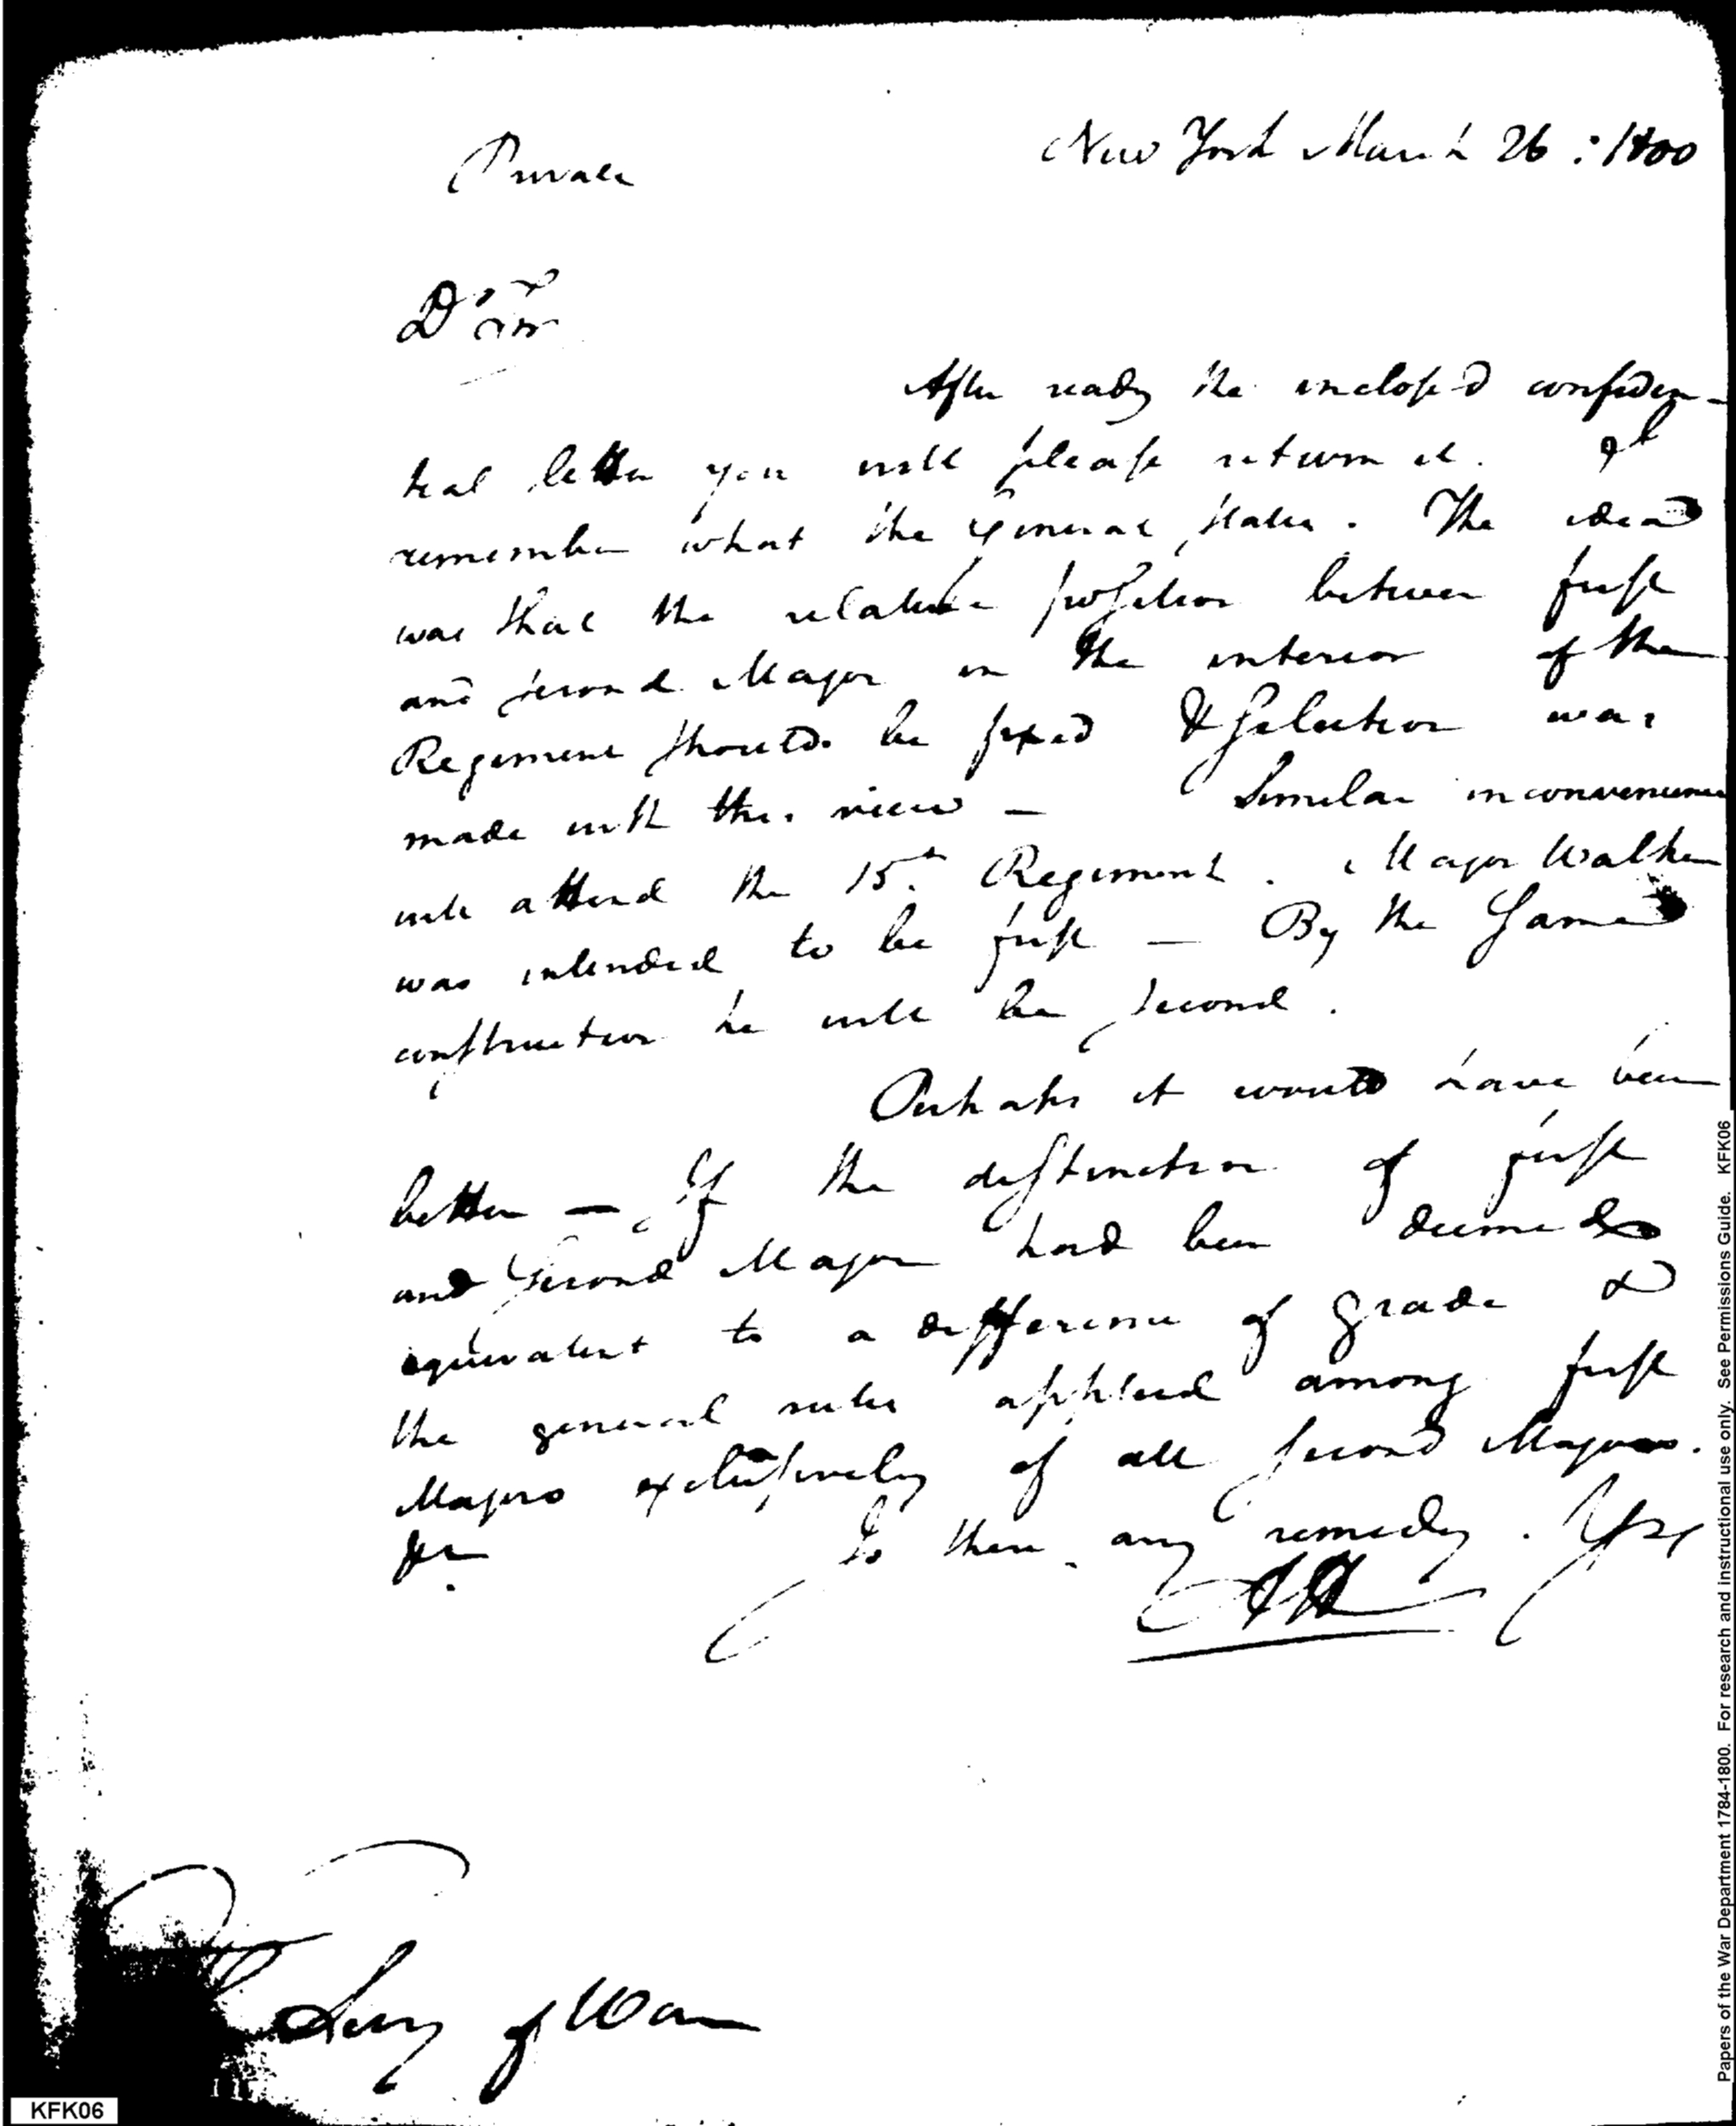 Private
New York March 26 : 1800
Dr Sir
After readg the inclosed confiden-
tial letter you will please return it. I
remember what the General states. The idea
was that the relative position between first
and second Major in the interior of the
Regiment should be fixed & selection was
made with this view — Similar inconvenience
will attend the 15th Regiment. Major Walker
was intended to be first — By the same
construction he will be second.
Perhaps it would have been
better — If the distinction of first
and Second Major had been deemed
equivalent to a difference of grade &
the general rules applied among first
Majors exclusively of all second Majors.
Is there any remedy. Yrs
AH
Secy of War
KFK06
Papers of the War Department 1784-1800. For research and instructional use only. See Permissions Guide. KFK06